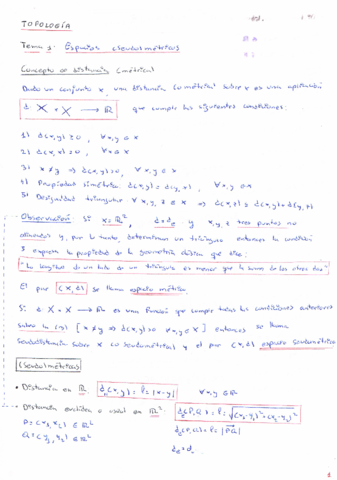 TOPOLOGÍA
Tema 1: Espacios (seudo)métricos
Concepto de distancia (métrica)
Dado un conjunto X, una distancia (o métrica) sobre X es una aplicación
d: X × X → ℝ que cumple las siguientes condiciones:
1) d(x,y) ≥ 0, ∀x,y ∈ X
2) d(x,x) = 0, ∀x ∈ X
3) x ≠ y ⇒ d(x,y) > 0, ∀x,y ∈ X
4) Propiedad simétrica: d(x,y) = d(y,x), ∀x,y ∈ X
5) Desigualdad triangular ∀x,y,z ∈ X ⇒ d(x,z) ≤ d(x,y) + d(y,z)
Observación: Si X = ℝ², d = dₑ y x,y,z tres puntos no
alineados y, por lo tanto, determinan un triángulo entonces la condición
5 expresa la propiedad de la geometría clásica que dice:
"La longitud de un lado de un triángulo es menor que la suma de los otros dos"
El par (X,d) se llama espacio métrico
Si d: X × X → ℝ es una función que cumple todas las condiciones anteriores
salvo la (3) [x ≠ y ⇒ d(x,y) > 0 ∀x,y ∈ X] entonces se llama
seudodistancia sobre X (o seudométrica) y el par (X,d) espacio seudométrico
(seudométricas)
• Distancia en ℝ. d(x,y) = |x-y| ∀x,y ∈ ℝ
• Distancia euclídea o usual en ℝ². dₑ(P,Q) = √(x₁-y₁)² + (x₂-y₂)²
P = (x₁, x₂) ∈ ℝ²
Q = (y₁, y₂) ∈ ℝ²
1